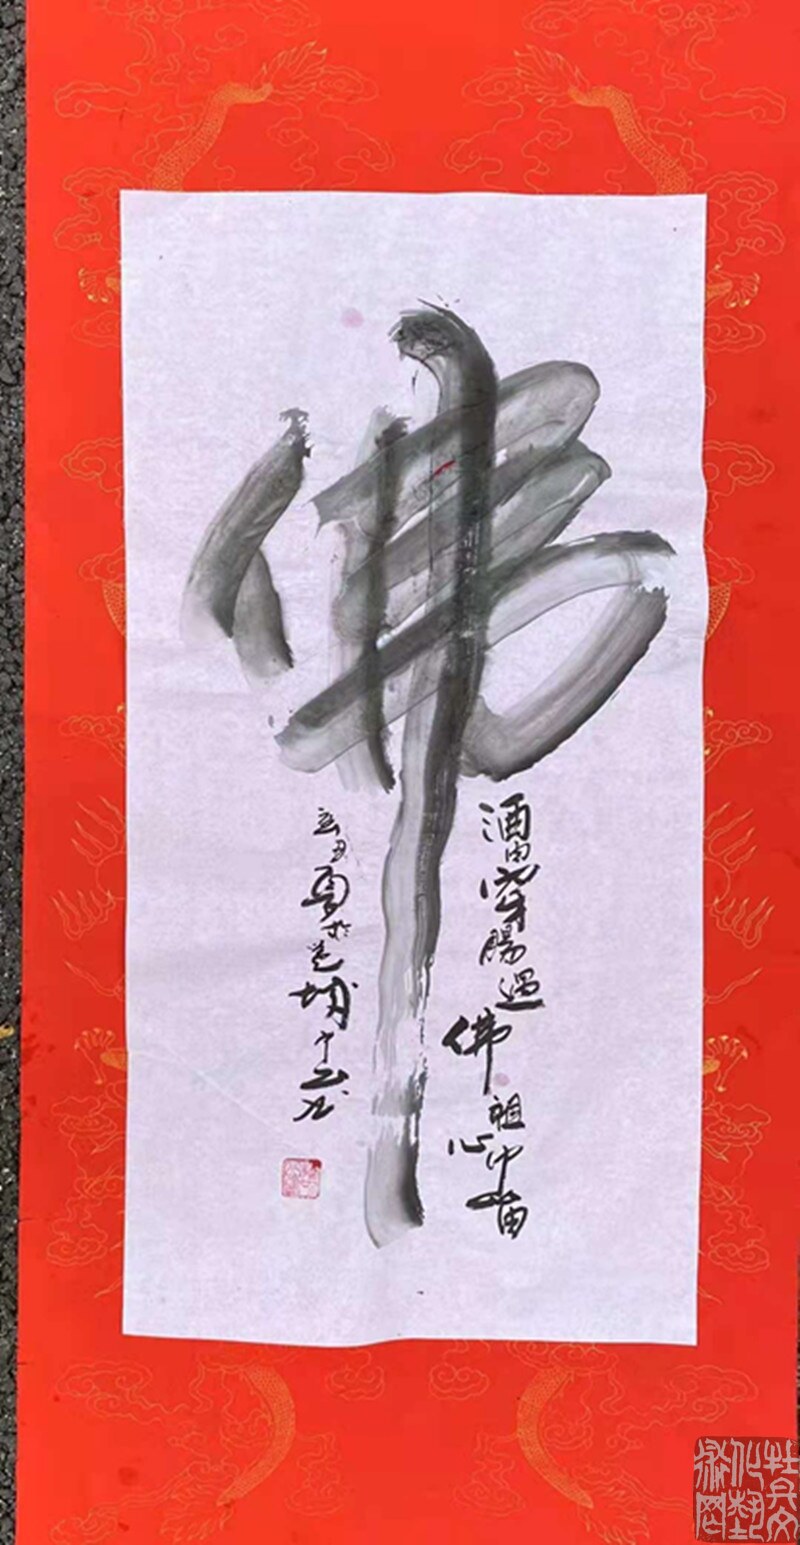 佛
酒肉穿腸過
佛祖心中留
辛丑夏於城